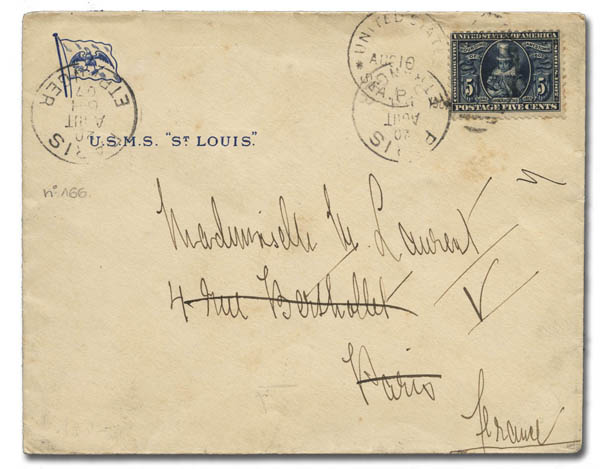 UNITED STATES
AUG 10
SEA
UNITED STATES OF AMERICA
5 5
POSTAGE FIVE CENTS
PARIS
ETRANGER
20
AOUT
07
PARIS
ETRANGER
20
AOUT
U.S.M.S. "ST LOUIS."
no. 166.
Mademoiselle M. Laurent
4 rue Berthollet
Paris
France